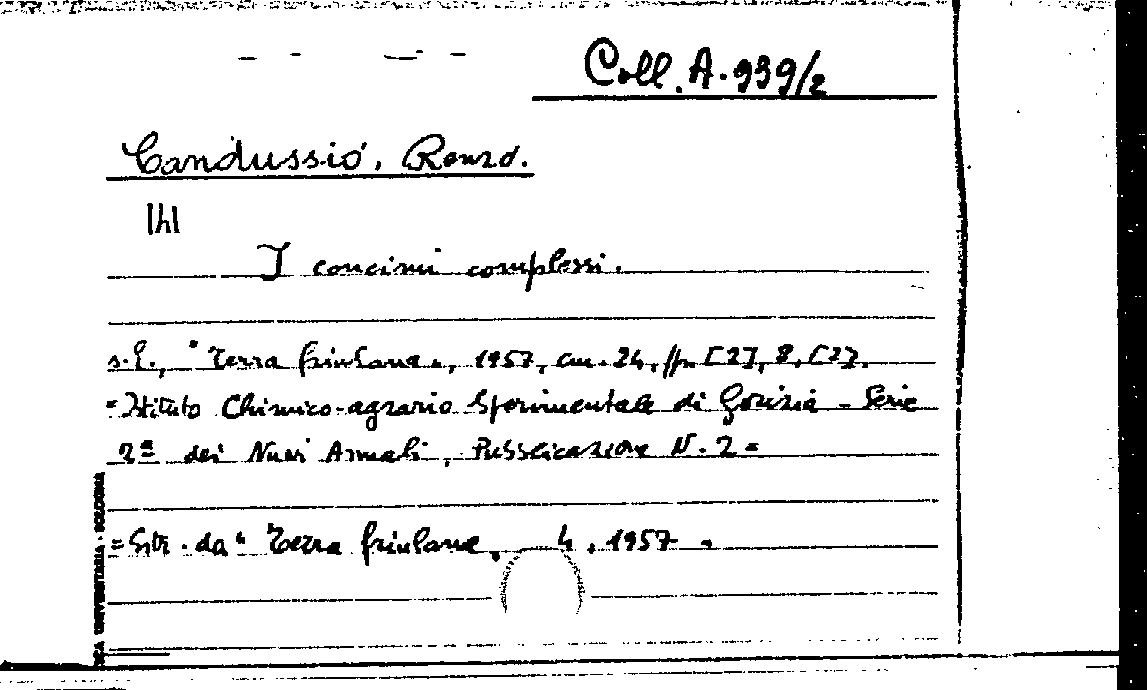 Coll. A. 939/2
Candussio, Renzo.
I concimi complessi.
s.l., "Terra friulana", 1957, cm. 24, pp. [2], 8, [2].
= Istituto Chimico-agrario Sperimentale di Gorizia - Serie
2ª dei Nuovi Annali, Pubblicazione N. 2 =
= Estr. da "Terra friulana, 4, 1957 =
UNIVERSITARIA - BOLOGNA